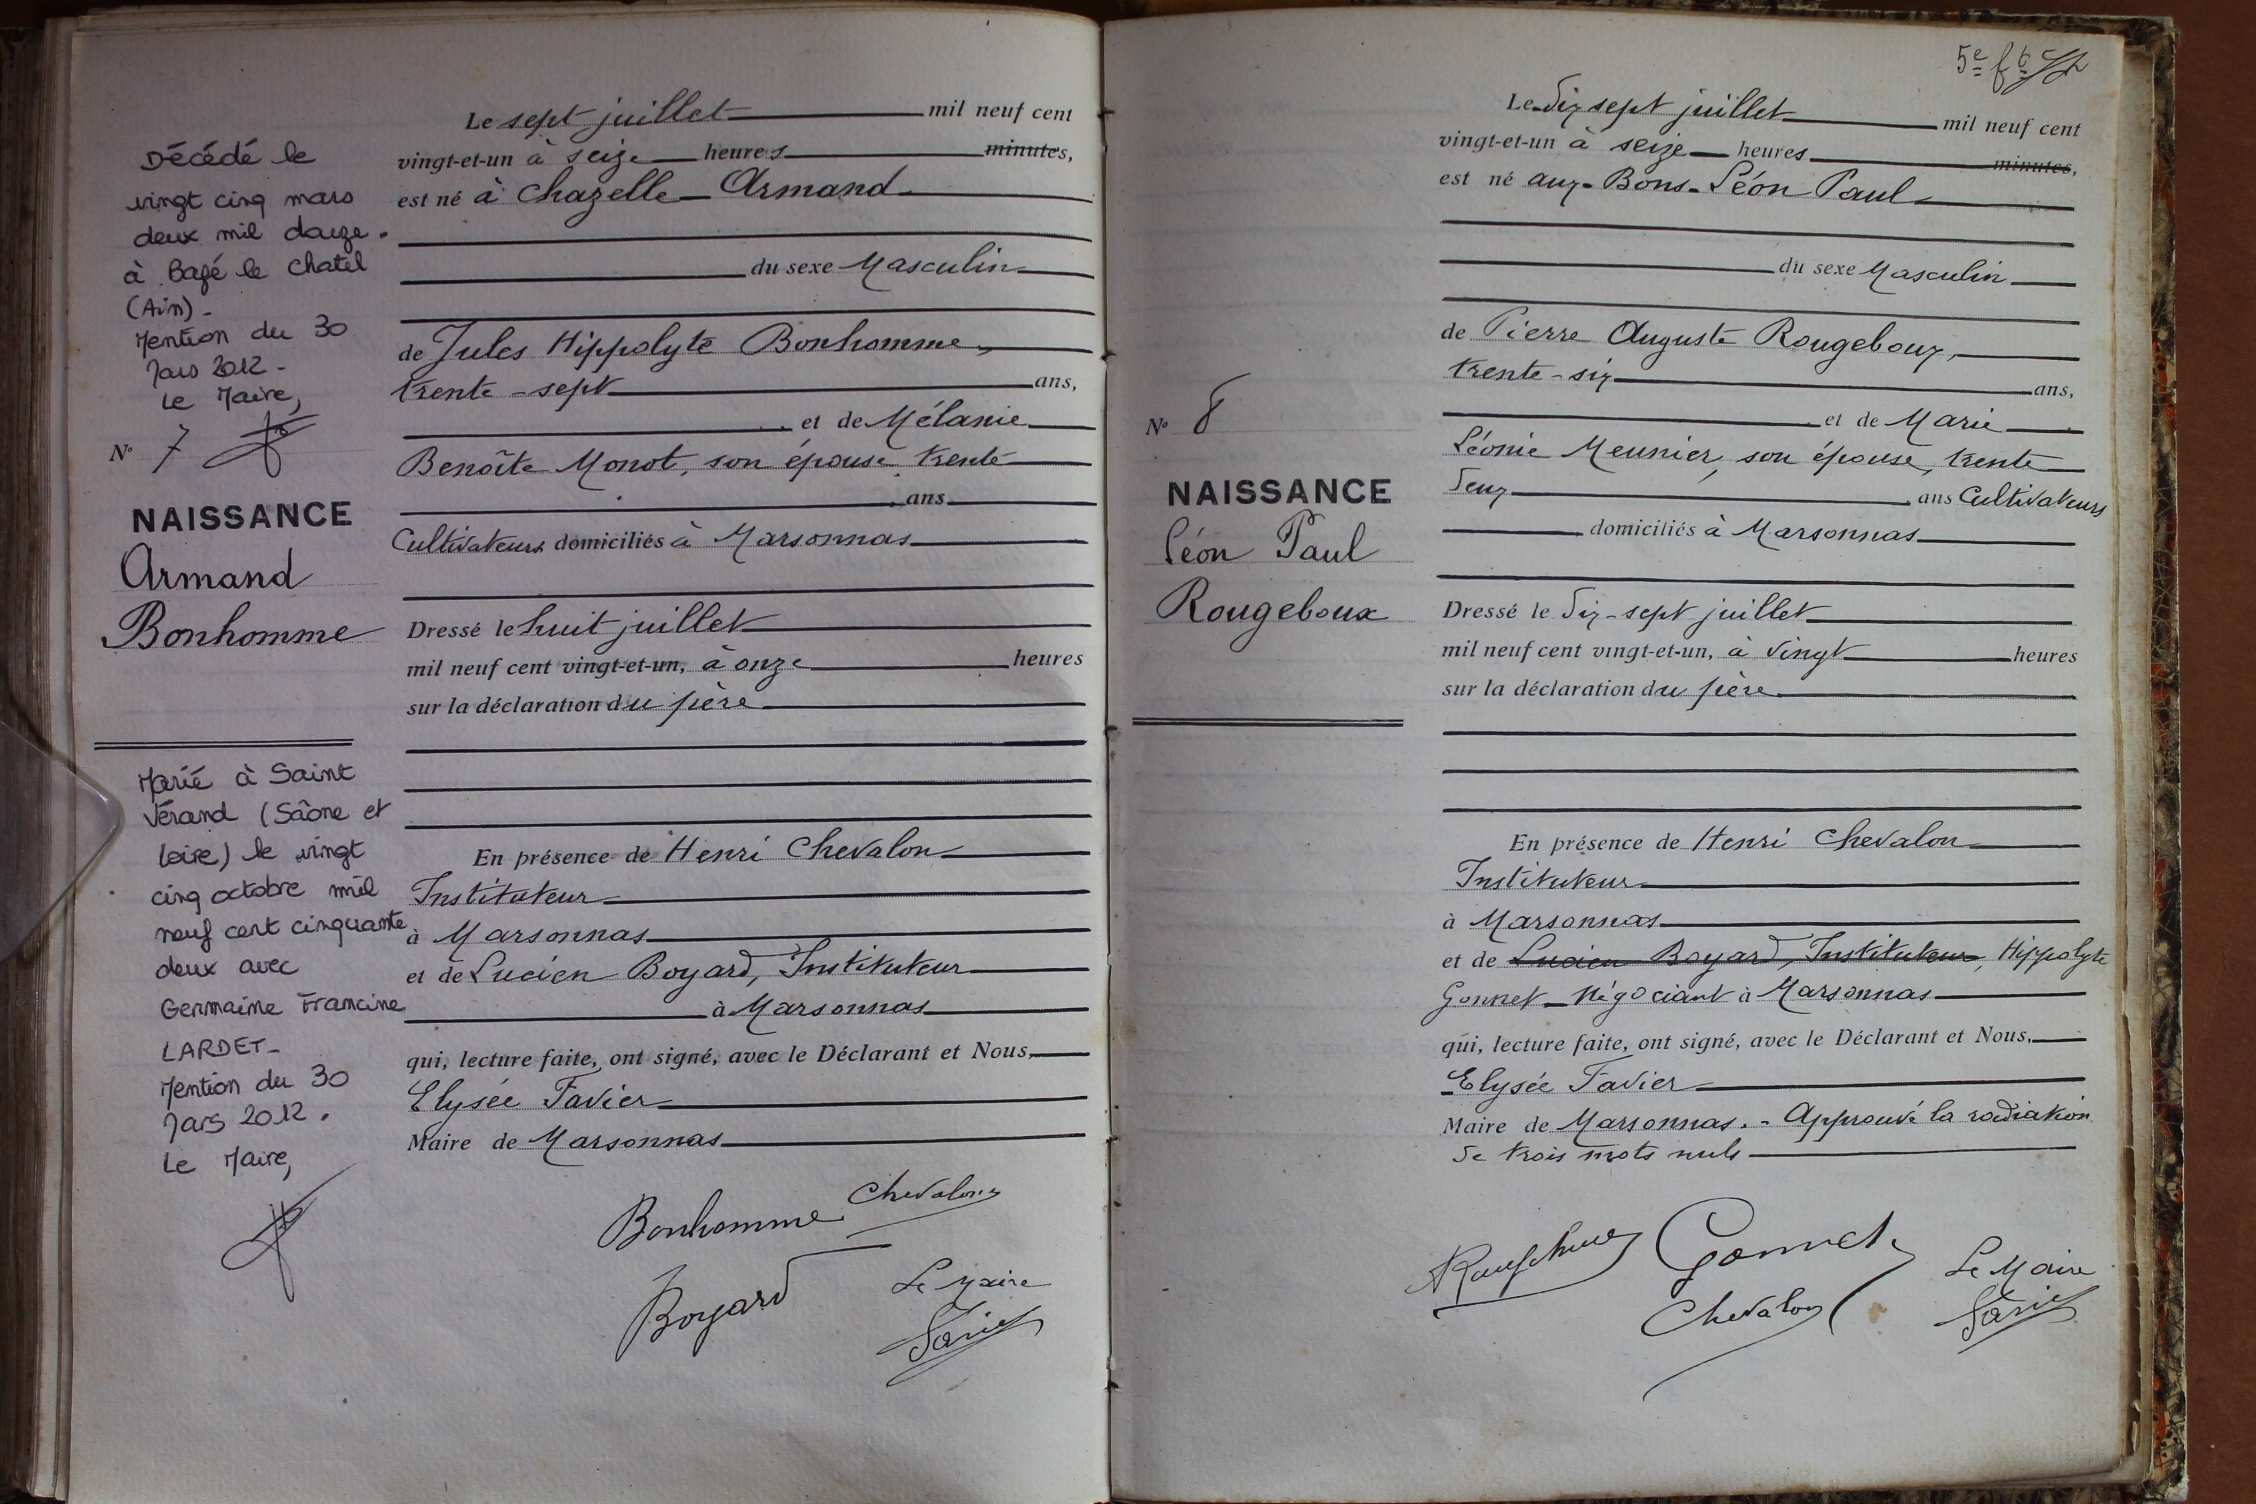 Décédé le
vingt cinq mars
deux mil douze.
à Bagé le Chatel
(Ain) -
Mention du 30
Mars 2012 -
Le Maire,
N° 7
NAISSANCE
Armand
Bonhomme
Marié à Saint
Vérand (Saône et
Loire) le vingt
cinq octobre mil
neuf cent cinquante
deux avec
Germaine Francine
LARDET -
Mention du 30
Mars 2012.
Le Maire,
Le sept juillet mil neuf cent
vingt-et-un à seize heures minutes,
est né à Chazelle - Armand
du sexe Masculin
de Jules Hippolyte Bonhomme,
trente-sept ans,
et de Mélanie
Benoîte Monot, son épouse, trente
ans
Cultivateurs domiciliés à Marsonnas
Dressé le huit juillet
mil neuf cent vingt-et-un, à onze heures
sur la déclaration du père
En présence de Henri Chevalon
Instituteur
à Marsonnas
et de Lucien Boyard, Instituteur
à Marsonnas
qui, lecture faite, ont signé, avec le Déclarant et Nous,
Elysée Favier
Maire de Marsonnas
Bonhomme Chevalon
Boyard Le Maire
Favier
5e ft
N° 8
NAISSANCE
Léon Paul
Rougeboux
Le dix sept juillet mil neuf cent
vingt-et-un à seize heures minutes,
est né aux Bons - Léon Paul
du sexe Masculin
de Pierre Auguste Rougeboux,
trente-six ans,
et de Marie
Léonie Meunier, son épouse, trente
deux ans Cultivateurs
domiciliés à Marsonnas
Dressé le dix-sept juillet
mil neuf cent vingt-et-un, à vingt heures
sur la déclaration du père
En présence de Henri Chevalon
Instituteur
à Marsonnas
et de Lucien Boyard, Instituteur, Hippolyte
Gonnet - Négociant à Marsonnas
qui, lecture faite, ont signé, avec le Déclarant et Nous,
Elysée Favier
Maire de Marsonnas. - Approuvé la radiation
de trois mots nuls
Gonnet
Chevalon
Le Maire
Favier